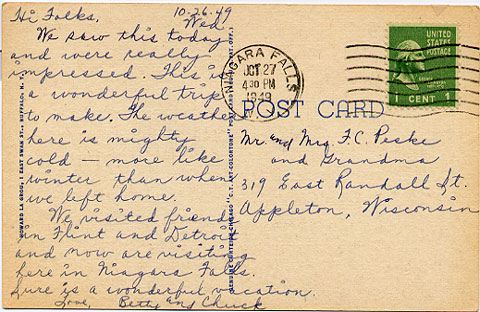 Hi Folks,
10-26-49
Wed.
We saw this today
and were really
impressed. This is
a wonderful trip
to make. The weather
here is mighty
cold — more like
winter than when
we left home.
We visited friends
in Flint and Detroit
and now are visiting
here in Niagara Falls.
Sure is a wonderful vacation.
Love, Betty and Chuck
HOWARD LA GROU, 1 EAST SWAN ST., BUFFALO, N.
GENUINE CURTEICH-CHICAGO "C.T. ART-COLORTONE" POST CARD
NIAGARA FALLS
OCT 27
4 30 PM
1949
UNITED
STATES
POSTAGE
1 CENT 1
POST CARD
Mr. and Mrs. F.C. Peske
and Grandma
319 East Randall St.
Appleton, Wisconsin